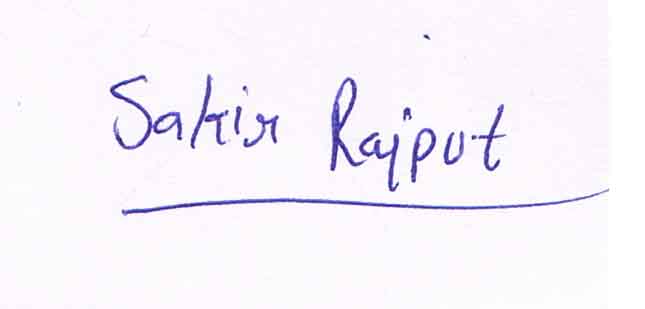 Sakir Rajput